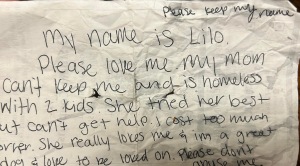 Please keep my name
My name is Lilo,
Please love me my mom
Can't keep me and is homeless
With 2 kids She tried her best
ut can't get help. I cost too much
for her. She really loves me & i'm a great
dog & love to be loved on. Please don't
abuse me